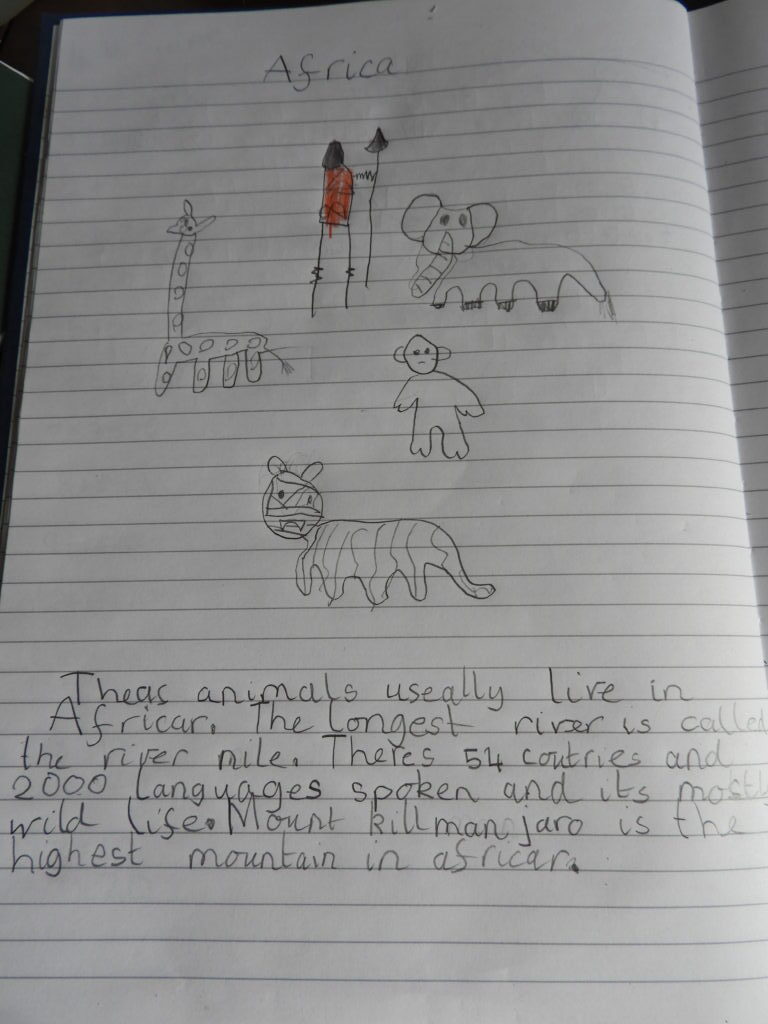 Africa
Theas animals useally live in
Africar. The longest river is called
the river nile. Theres 54 coutries and
2000 languages spoken and its mostly
wild life. Mount killmanjaro is the
highest mountain in africar.